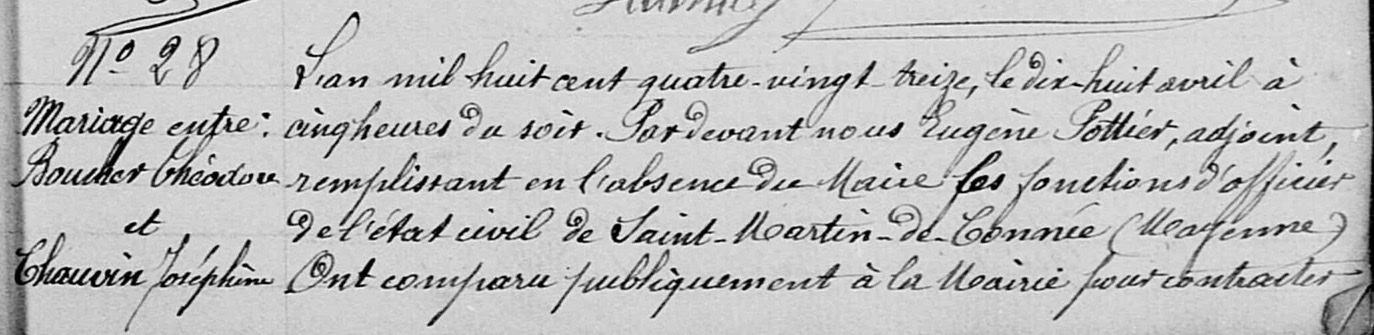 No 28
Mariage entre :
Boucher Théodore
et
Chauvin Joséphine
L'an mil huit cent quatre-vingt-treize, le dix-huit avril à
cinq heures du soir. Par devant nous Eugène Pottier, adjoint,
remplissant en l'absence du Maire les fonctions d'officier
de l'état civil de Saint-Martin-de-Connée (Mayenne)
Ont comparu publiquement à la Mairie pour contracter